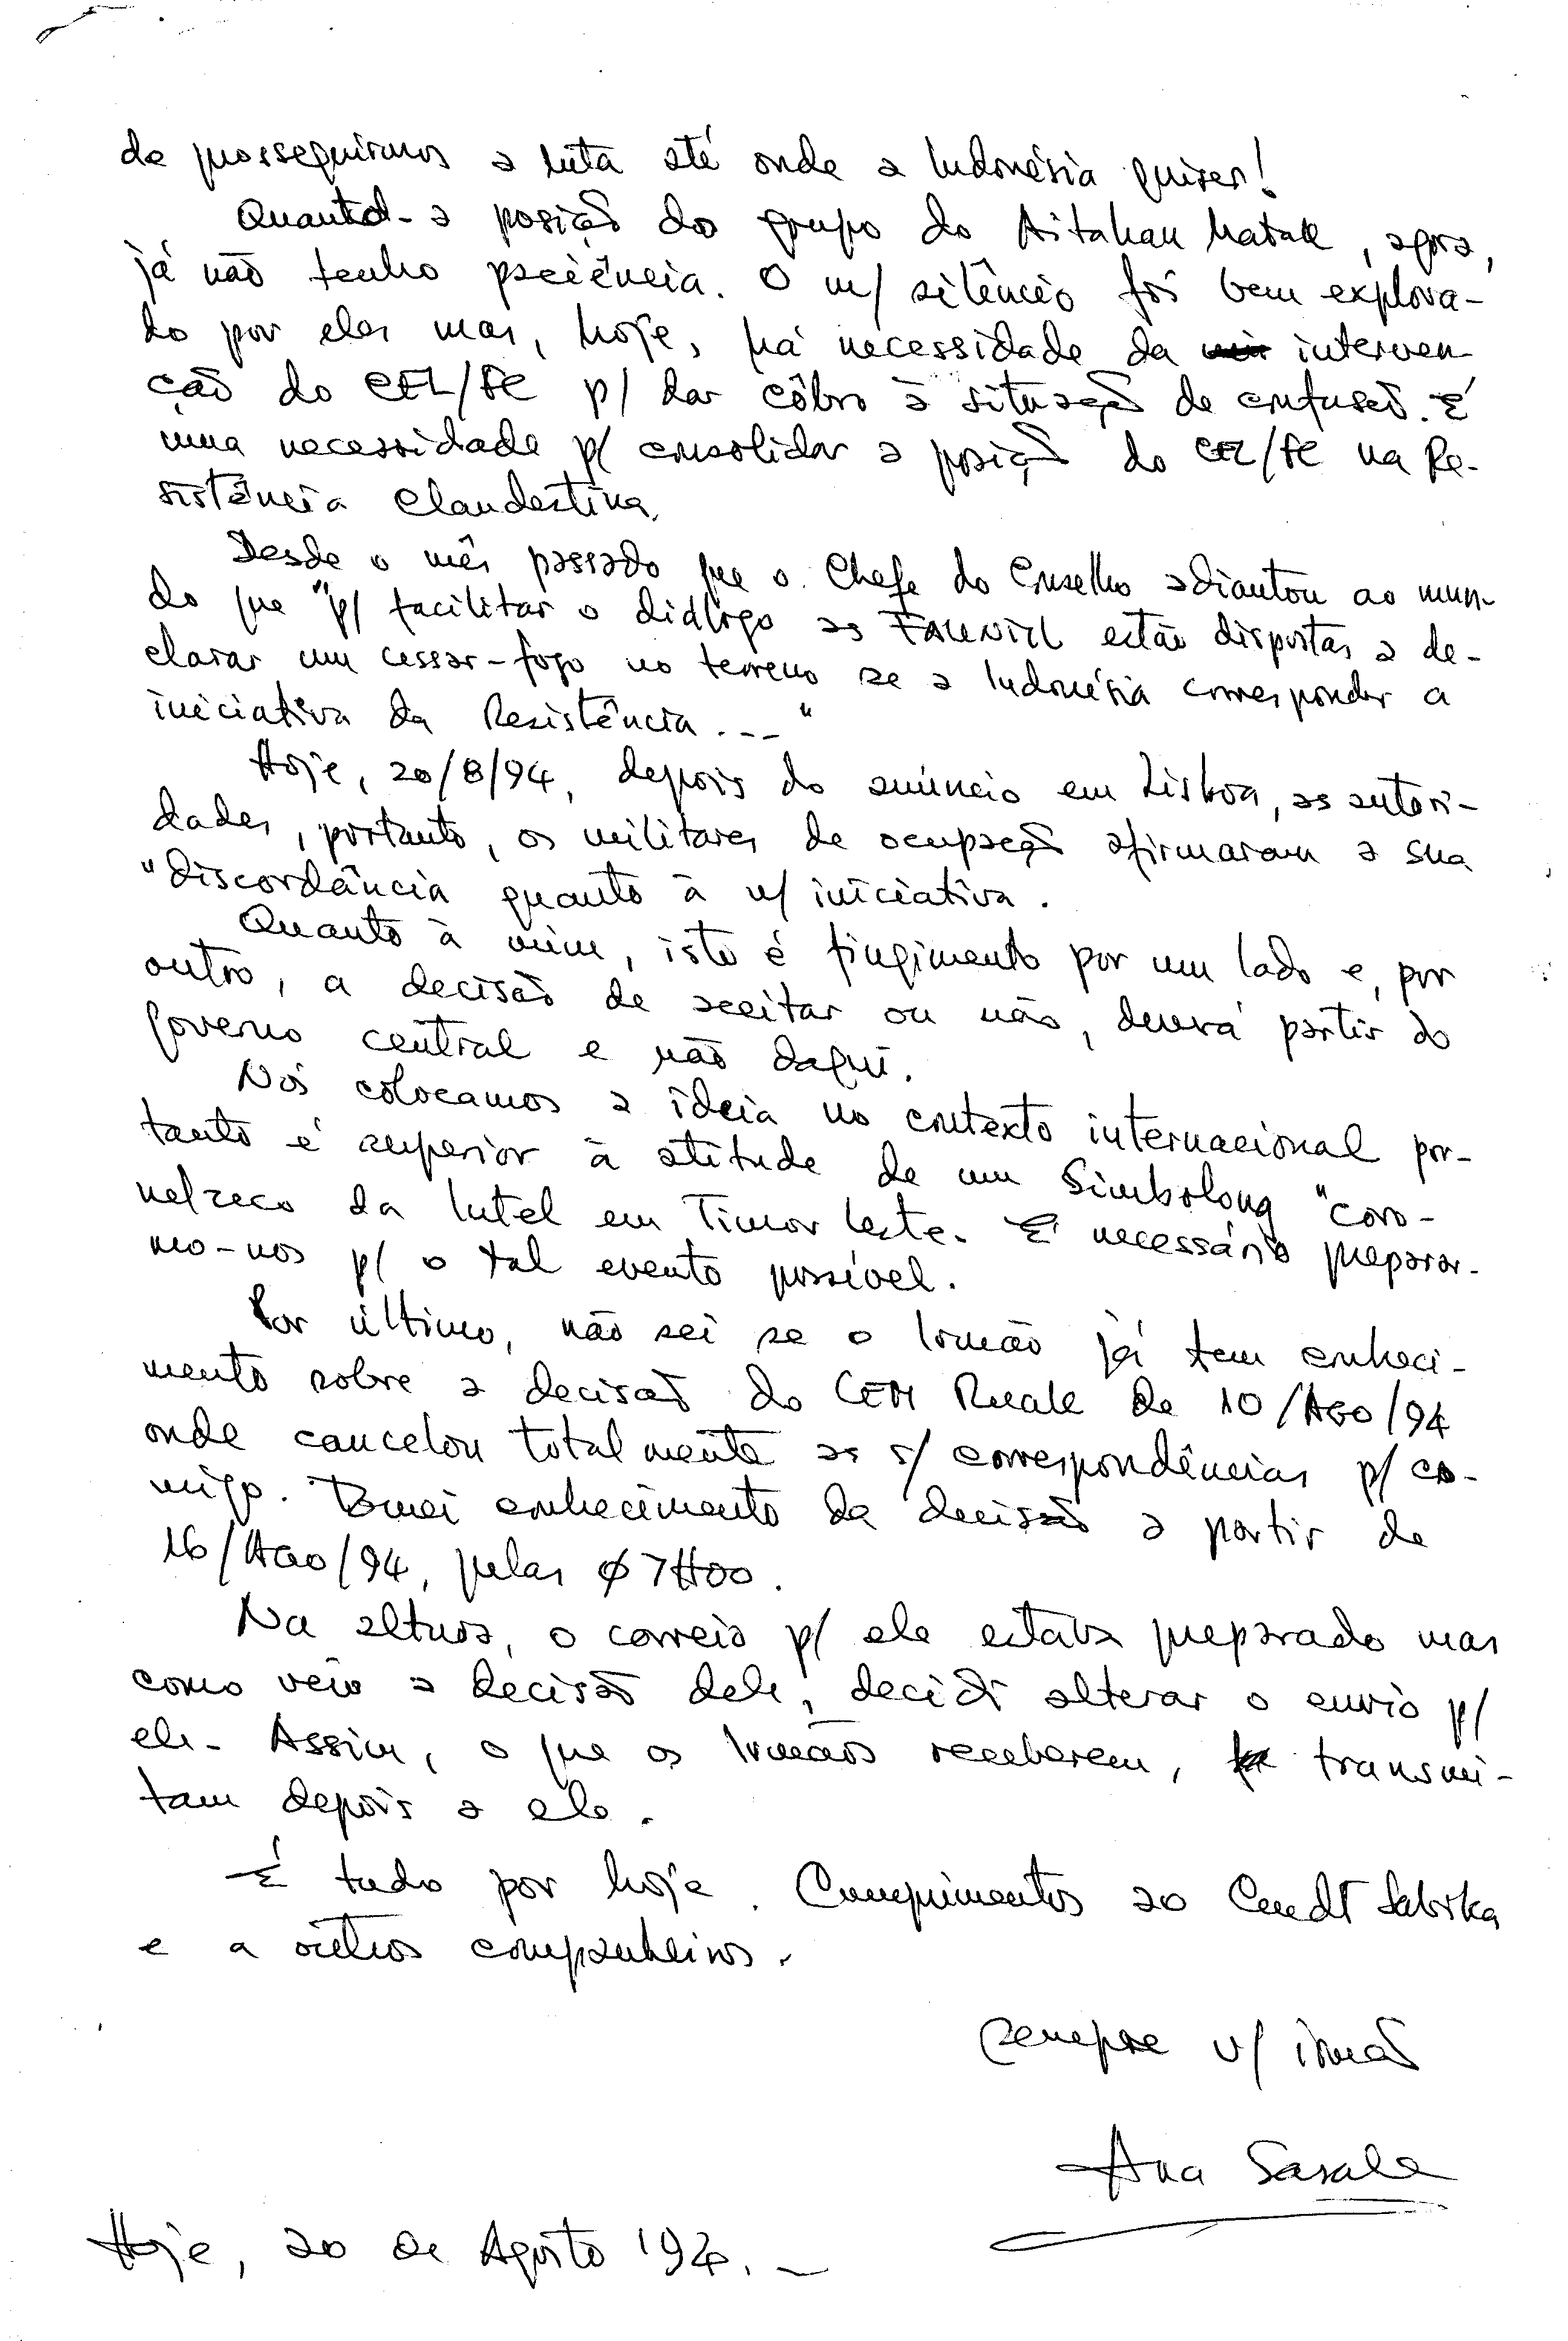 de prosseguirmos a luta até onde a Indonésia quiser!
Quanto a posição do grupo do Aitahan Matak, agora,
já não tenho paciência. O m/ silêncio foi bem explora-
do por eles mas, hoje, há necessidade da interven-
ção do CEL/FC p/ dar côbro à situação de confusão. É
uma necessidade p/ consolidar a posição do CEL/FC na Re-
sistência Clandestina.
Desde o mês passado que o Chefe do Conselho adiantou ao mun-
do que "p/ facilitar o diálogo as FALINTIL estão dispostas a de-
clarar um cessar-fogo no terreno se a Indonésia corresponder a
iniciativa da Resistência..."
Hoje, 20/8/94, depois do anúncio em Lisboa, as autori-
dades, portanto, os militares de ocupação afirmaram a sua
"discordância quanto à n/ iniciativa.
Quanto à mim, isto é fingimento por um lado e, por
outro, a decisão de aceitar ou não, deverá partir do
governo central e não daqui.
Nós colocamos a ideia no contexto internacional por-
tanto é superior à atitude de um Simbolong "coro-
nelzeco da Intel em Timor Leste. É necessário preparar-
mo-nos p/ o tal evento possível.
Por último, não sei se o Irmão já tem conheci-
mento sobre a decisão do CEM Ruak de 10/AGO/94
onde cancelou totalmente as s/ correspondências p/ co-
migo. Tomei conhecimento da decisão a partir de
16/AGO/94, pelas 07H00.
Na altura, o correio p/ ele estava preparado mas
como veio a decisão dele, decidi alterar o envio p/
ele. Assim, o que os Irmãos receberem, transmi-
tam depois a ele.
É tudo por hoje. Cumprimentos ao Cmdt Sabika
e a outros companheiros.
Sempre v/ irmão
Ana Sasale
Hoje, 20 de Agosto '94.-